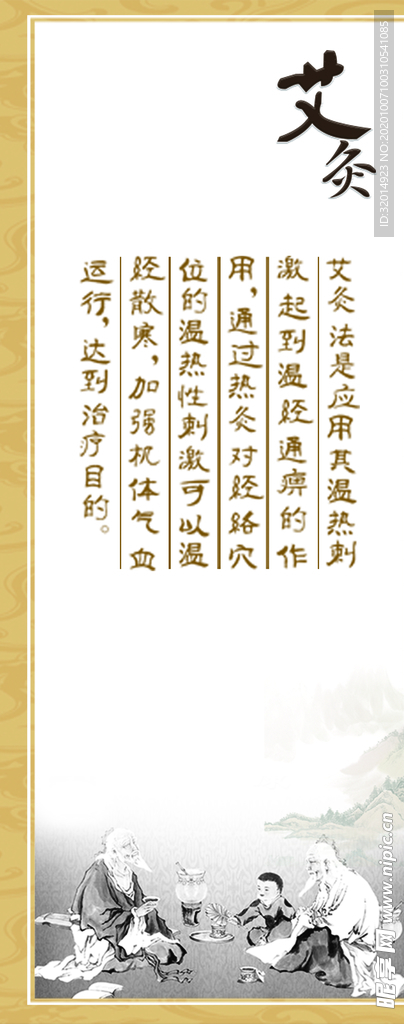 艾灸
艾灸法是应用其温热刺
激起到温经通痹的作
用，通过热灸对经络穴
位的温热性刺激可以温
经散寒，加强机体气血
运行，达到治疗目的。
ID:32014923 NO:20201007100310541085
昵享网 www.nipic.cn